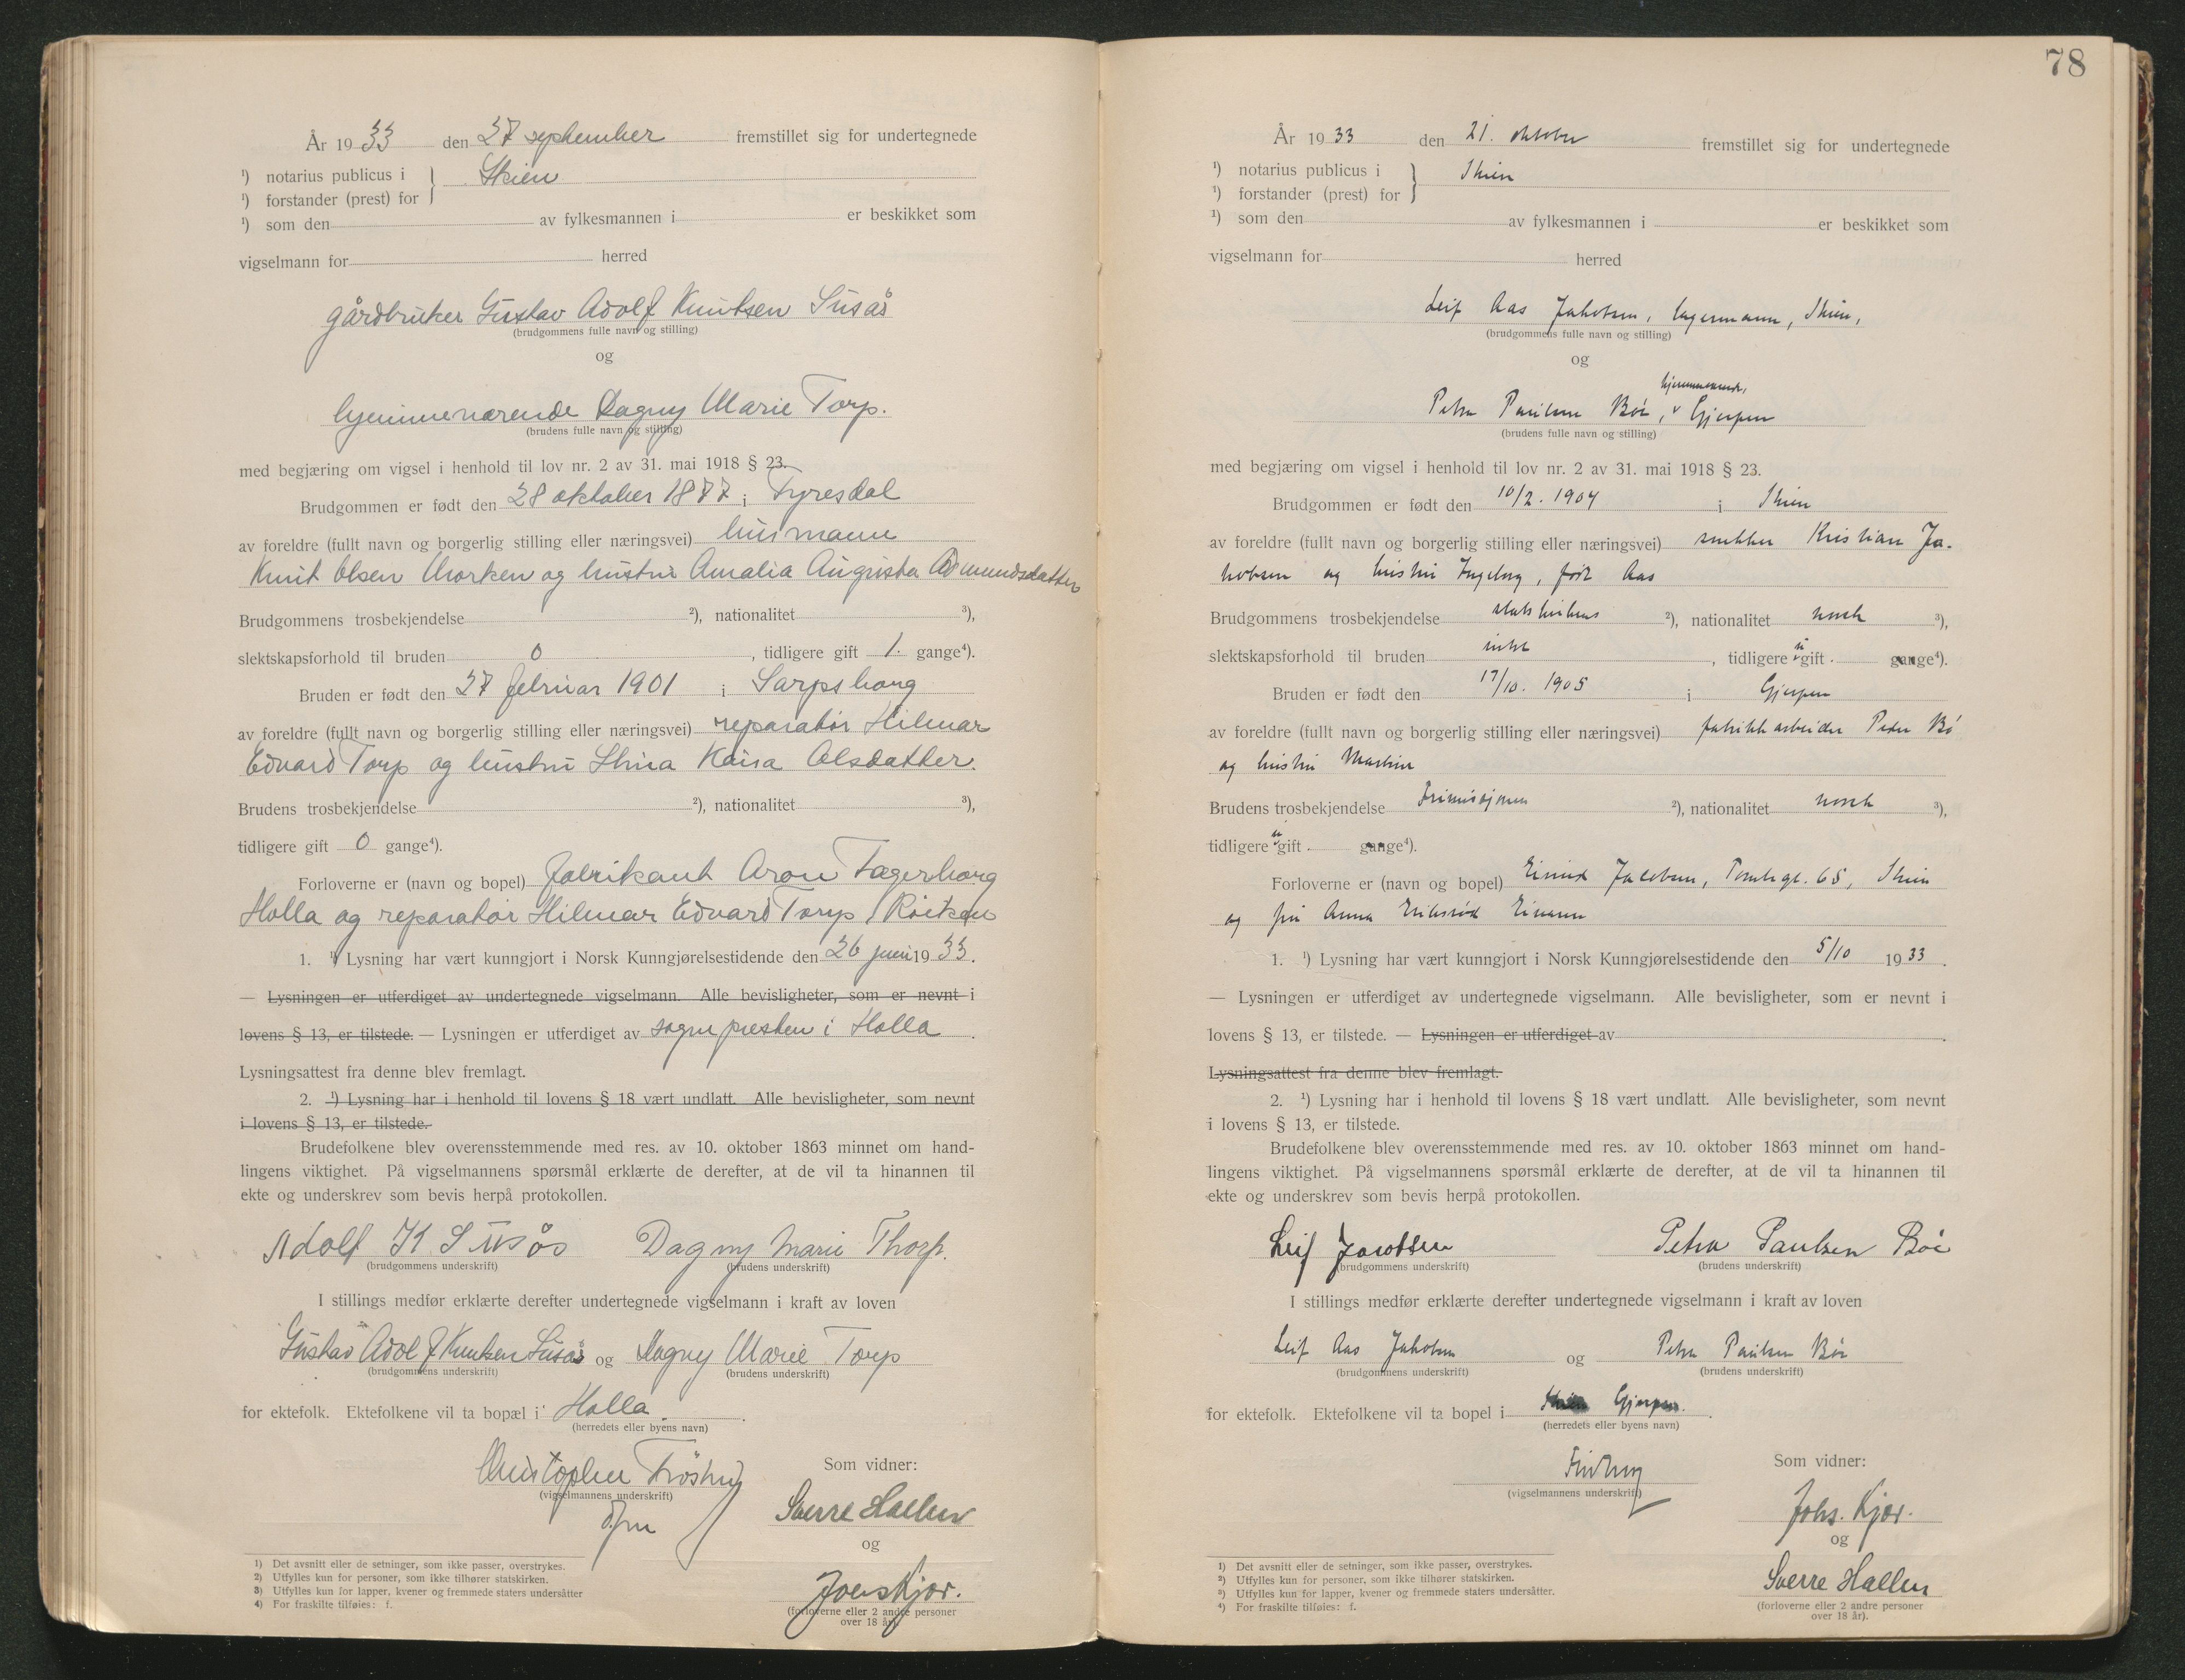 År 1933 den 27 september fremstillet sig for undertegnede
¹) notarius publicus i } Skien
¹) forstander (prest) for
¹) som den av fylkesmannen i er beskikket som
vigselmann for herred
gårdbruker Gustav Adolf Knutsen Susås
(brudgommens fulle navn og stilling)
og
hjemmeværende Dagny Marie Torp.
(brudens fulle navn og stilling)
med begjæring om vigsel i henhold til lov nr. 2 av 31. mai 1918 § 23.
Brudgommen er født den 28 oktober 1877 i Fyresdal
av foreldre (fullt navn og borgerlig stilling eller næringsvei) husmann
Knut Olsen Morken og hustru Amalia Augusta Admundsdatter
Brudgommens trosbekjendelse ²), nationalitet ³),
slektskapsforhold til bruden 0, tidligere gift 1. gange⁴).
Bruden er født den 27 februar 1901 i Sarpsborg
av foreldre (fullt navn og borgerlig stilling eller næringsvei) reparatør Hilmar
Edvard Torp og hustru Stina Kaisa Olsdatter.
Brudens trosbekjendelse ²), nationalitet ³),
tidligere gift 0 gange⁴).
Forloverne er (navn og bopel) fabrikant Aron Fagerborg
Holla og reparatør Hilmar Edvard Torp, Røiken
1. ¹) Lysning har vært kunngjort i Norsk Kunngjørelsestidende den 26 juni 1933.
— Lysningen er utferdiget av undertegnede vigselmann. Alle bevisligheter, som er nevnt i
lovens § 13, er tilstede. — Lysningen er utferdiget av sognepresten i Holla.
Lysningsattest fra denne blev fremlagt.
2. ¹) Lysning har i henhold til lovens § 18 vært undlatt. Alle bevisligheter, som nevnt
i lovens § 13, er tilstede.
Brudefolkene blev overensstemmende med res. av 10. oktober 1863 minnet om hand-
lingens viktighet. På vigselmannens spørsmål erklærte de derefter, at de vil ta hinannen til
ekte og underskrev som bevis herpå protokollen.
Adolf K Susås Dagny Marie Thorp.
(brudgommens underskrift) (brudens underskrift)
I stillings medfør erklærte derefter undertegnede vigselmann i kraft av loven
Gustav Adolf Knutsen Susås og Dagny Marie Torp
(brudgommens underskrift) (brudens underskrift)
for ektefolk. Ektefolkene vil ta bopæl i Holla.
(herredets eller byens navn)
Christopher
(vigselmannens underskrift)
Som vidner:
Sverre Hallen
og
Johs Kjær.
(forloverne eller 2 andre personer
over 18 år).
1) Det avsnitt eller de setninger, som ikke passer, overstrykes.
2) Utfylles kun for personer, som ikke tilhører statskirken.
3) Utfylles kun for lapper, kvener og fremmede staters undersåtter
4) For fraskilte tilføies: f.
78
År 1933 den 21. oktober fremstillet sig for undertegnede
¹) notarius publicus i } Skien
¹) forstander (prest) for
¹) som den av fylkesmannen i er beskikket som
vigselmann for herred
Leif Aas Jakobsen, lagermann, Skien,
(brudgommens fulle navn og stilling)
og
hjemmeværende,
Petra Paulsen Bøe, v Gjerpen
(brudens fulle navn og stilling)
med begjæring om vigsel i henhold til lov nr. 2 av 31. mai 1918 § 23.
Brudgommen er født den 10/2. 1904 i Skien
av foreldre (fullt navn og borgerlig stilling eller næringsvei) snekker Kristian Ja-
kobsen og hustru Ingeborg, født Aas
Brudgommens trosbekjendelse statskirkens ²), nationalitet norsk ³),
slektskapsforhold til bruden intet, tidligere u gift gange⁴).
Bruden er født den 17/10. 1905 i Gjerpen
av foreldre (fullt navn og borgerlig stilling eller næringsvei) fabrikkarbeider Peder Bø
og hustru Martine
Brudens trosbekjendelse Frimisjonen ²), nationalitet norsk ³),
tidligere u gift gange⁴).
Forloverne er (navn og bopel) Eivind Jacobsen, 65, Skien
og fru Anna
1. ¹) Lysning har vært kunngjort i Norsk Kunngjørelsestidende den 5/10 1933.
— Lysningen er utferdiget av undertegnede vigselmann. Alle bevisligheter, som er nevnt i
lovens § 13, er tilstede. — Lysningen er utferdiget av
Lysningsattest fra denne blev fremlagt.
2. ¹) Lysning har i henhold til lovens § 18 vært undlatt. Alle bevisligheter, som nevnt
i lovens § 13, er tilstede.
Brudefolkene blev overensstemmende med res. av 10. oktober 1863 minnet om hand-
lingens viktighet. På vigselmannens spørsmål erklærte de derefter, at de vil ta hinannen til
ekte og underskrev som bevis herpå protokollen.
Leif Jacobsen Petra Paulsen Bøe
(brudgommens underskrift) (brudens underskrift)
I stillings medfør erklærte derefter undertegnede vigselmann i kraft av loven
Leif Aas Jakobsen og Petra Paulsen Bøe
(brudgommens underskrift) (brudens underskrift)
for ektefolk. Ektefolkene vil ta bopel i Skien Gjerpen.
(herredets eller byens navn)
(vigselmannens underskrift)
Som vidner:
Johs. Kjær.
og
Sverre Hallen
(forloverne eller 2 andre personer
over 18 år).
1) Det avsnitt eller de setninger, som ikke passer, overstrykes.
²) Utfylles kun for personer, som ikke tilhører statskirken.
³) Utfylles kun for lapper, kvener og fremmede staters undersåtter.
⁴) For fraskilte tilføies: f.